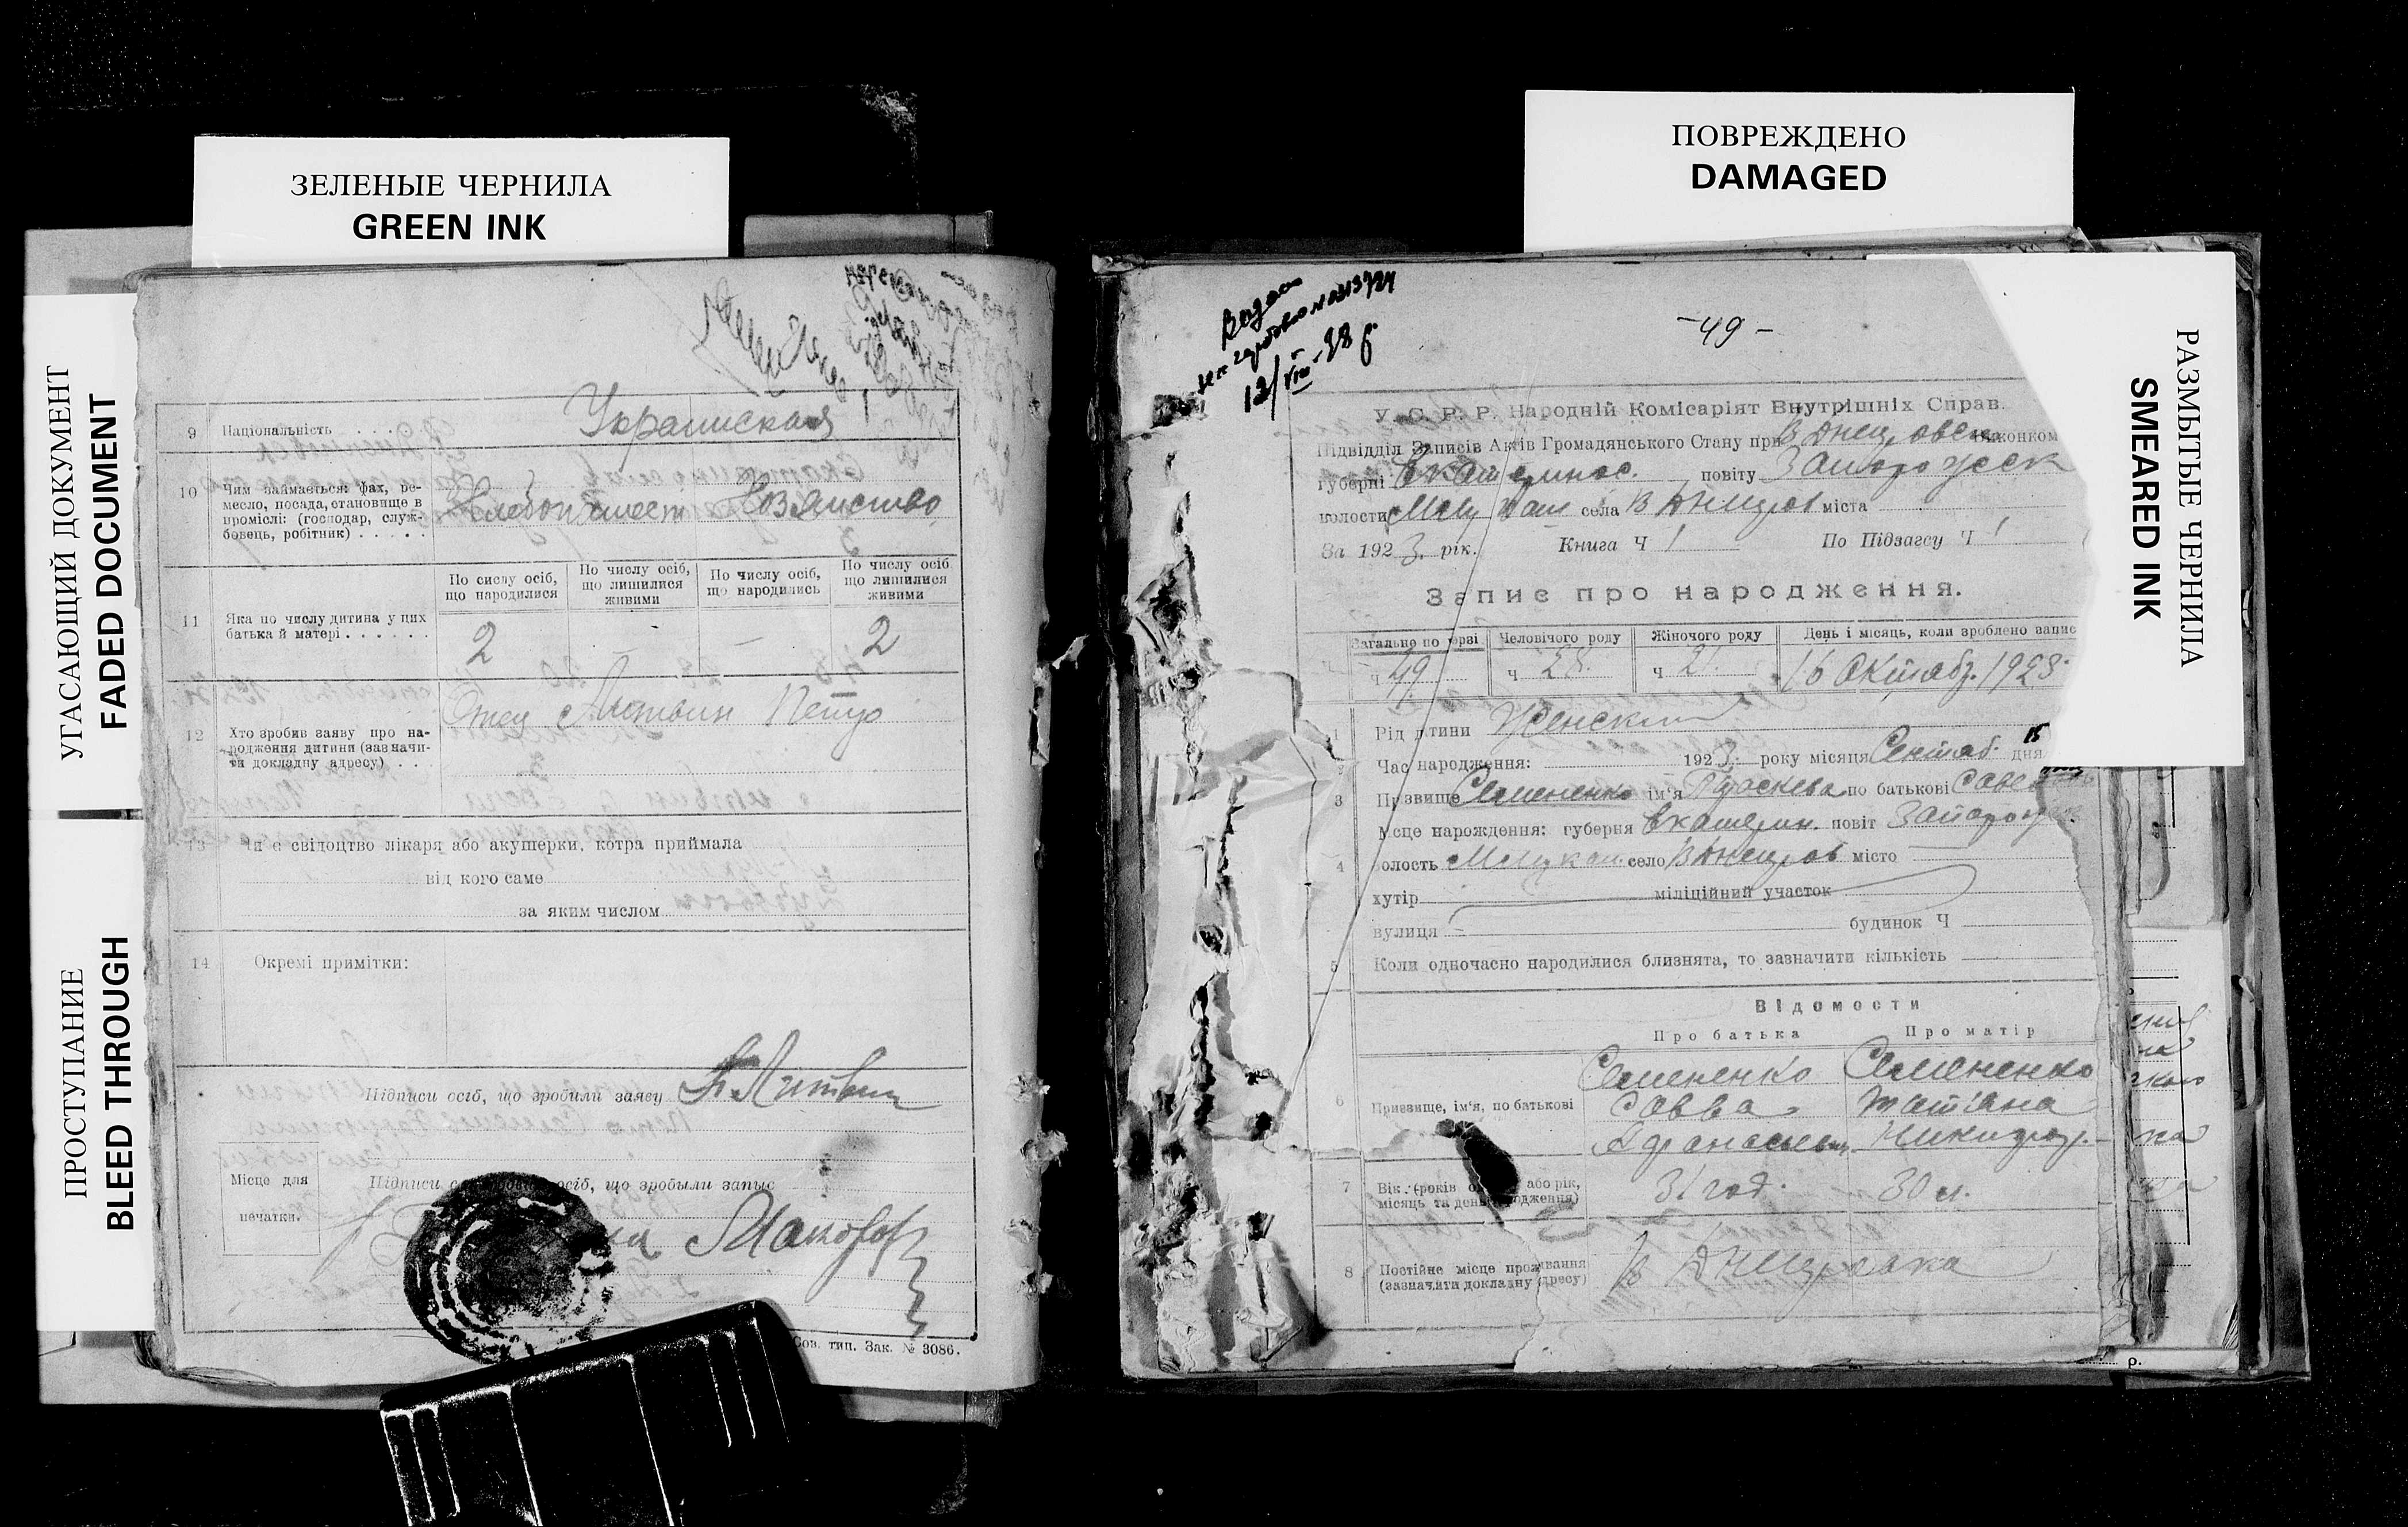 ЗЕЛЕНЫЕ ЧЕРНИЛА
GREEN INK
УГАСАЮЩИЙ ДОКУМЕНТ
FADED DOCUMENT
ПРОСТУПАНИЕ
BLEED THROUGH
9 Національність . . . . Украинская
10 Чим займається: фах, ре-
месло, посада, становище в
промислі: (господар, служ-
бовець, робітник) . . . . .
11 Яка по числу дитина у цих
батька й матері . . . . . .
По сислу осіб,
що народилися
По числу осіб,
що лишилися
живими
По числу осіб,
що народились
По числу осіб
що лишилися
живими
2 — — 2
12 Хто зробив заяву про на-
родження дитини (зазначи-
ти докладну адресу) . . .
Отец Литвин Петро
13 Чи є свідоцтво лікаря або акушерки, котра приймала
від кого саме
за яким числом
14 Окремі примітки:
Підписи осіб, що зробили заяву П. Литвин
Місце для
печатки.
Підписи осіб, що зробыли запис
Сов. тип. Зак. № 3086.
ПОВРЕЖДЕНО
DAMAGED
РАЗМЫТЫЕ ЧЕРНИЛА
SMEARED INK
12/VIII-38 г
-49-
У. С. Р. Р. Народній Комісаріят Внутрішніх Справ.
Підвідділ Записів Актів Громадянського Стану при В Днепровск виконком
губерні Екатеринос. повіту Запорожск
волости села В Днепров міста
За 1923 рік. Книга Ч 1 По Підзагсу Ч 1
Запис про народження.
Загальне по черзі Человічого роду Жіночого роду День і місяць, коли зроблено запис
ч 49 ч 28. ч 21. 16 Октябр. 1923
1 Рід дитини Женский
2 Час народження: 1923 року місяця Сентяб. 15 дня
3 Призвище Семененко ім'я Параскева по батькові
4 Місце народження: губерня Екатерин. повіт Запорож
волость село В Днепров місто
хутір міліційний участок
вулиця — будинок Ч
5 Коли одночасно народилися близнята, то зазначити кількість
Відомости
Про батька Про матір
6 Призвище, ім'я, по батькові
Семененко Семененко
Савва Татіана
Афанасьев. Никифор.
7 Вік (років або рік,
місяць та день народження)
31 год. 30 л.
8 Постійне місце проживання
(зазначити докладну адресу)
В Днепровка
р.